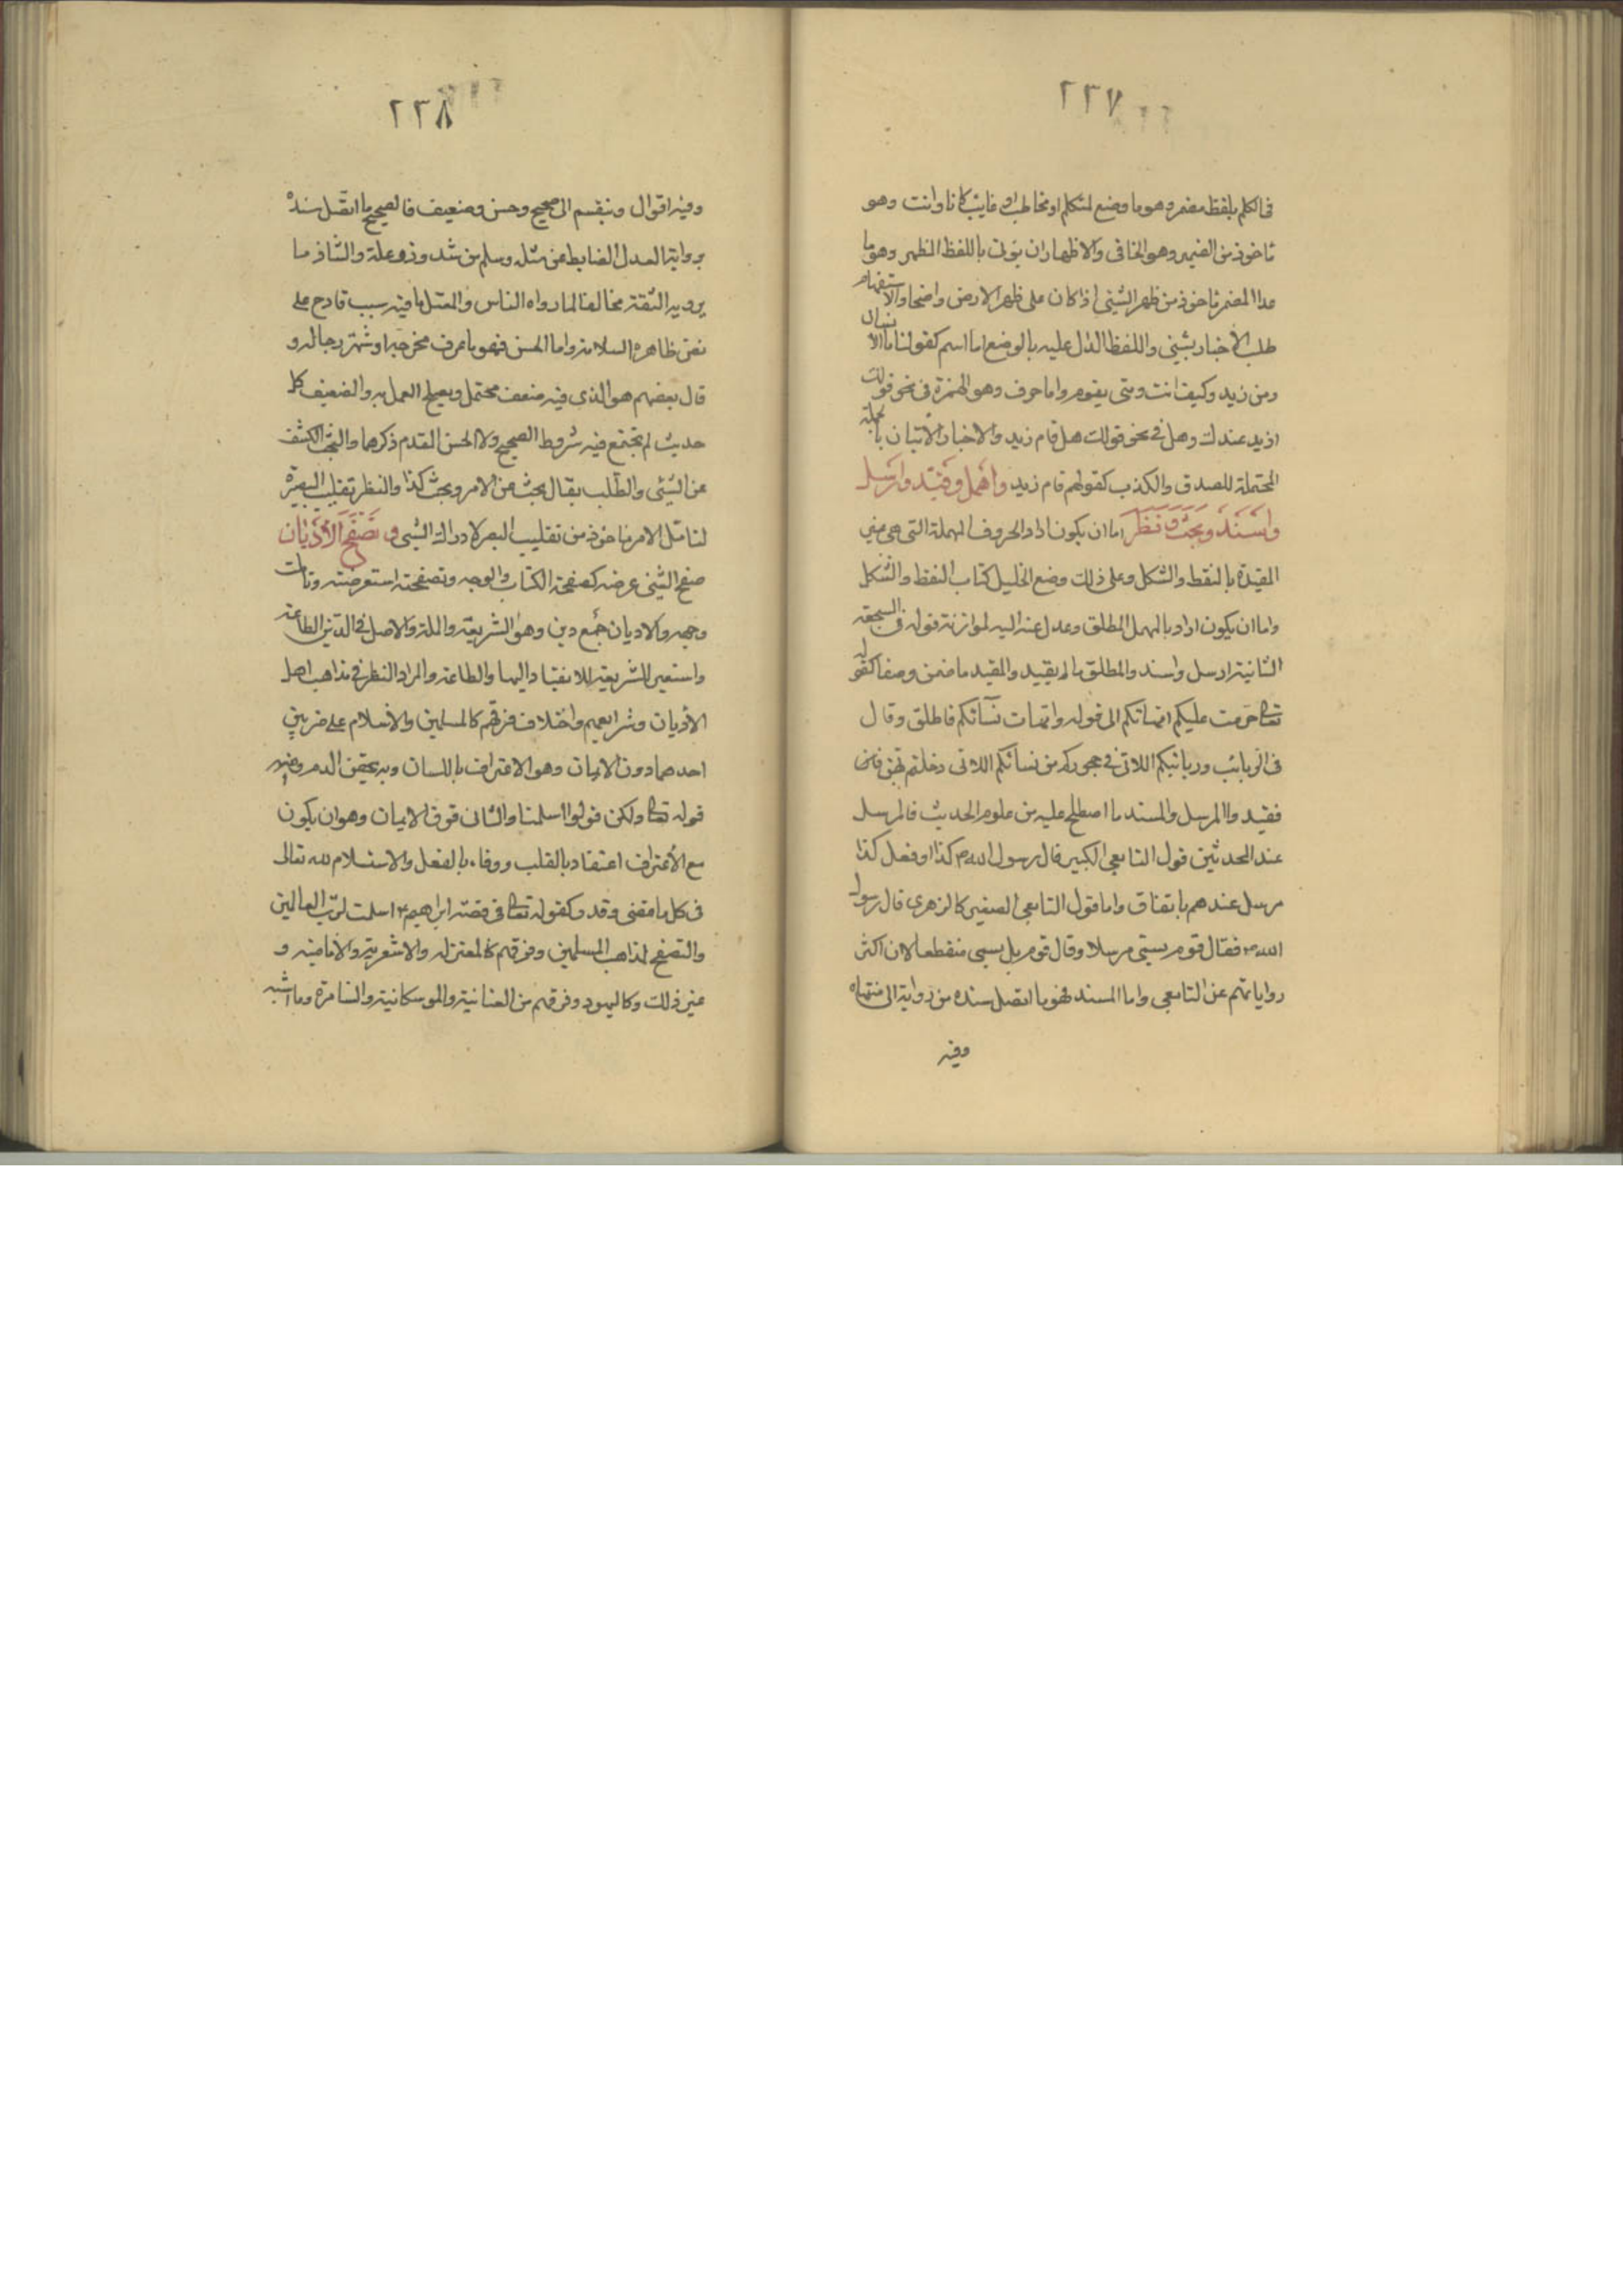 ٢٣٧
في الكلم بلفظ مضمر وهو ما وضع لمتكلم او مخاطب او غايب كانا وانت وهو
ماخوذ من الضمير وهو الخافى والاظهار ان يوتى باللفظ المظهر وهو ما
عدا المضمر ماخوذ من ظهر الشئى اذا كان على ظهر الارض واضحا والاستفهام
طلب الاخبار بشيئ واللفظ الدال عليه بالوضع اما اسم كقولنا ما الانسان
ومن زيد وكيف انت ومتى يقوم واما حرف وهو الهمزة في نحو قولك
ازيد عندك وهل في نحو قولك هل قام زيد والاخبار الاتيان بالجملة
المحتملة للصدق والكذب كقولهم قام زيد واهمل وقيد وارسل
واسند وبحث ونظر اما ان يكون اراد الحروف المهملة التي هي غير
المقيدة بالنقط والشكل وعلى ذلك وضع الخليل كتاب النقط والشكل
واما ان يكون اراد بالمهمل المطلق وعدل عنه اليه لموازنة قوله في السجعة
الثانية ارسل واسند والمطلق ما لم يقيد والمقيد ما ضمن وصفا كقوله
تعالى حرمت عليكم امهاتكم الى قوله وامهات نسآئكم فاطلق وقال
في الربائب وربائبكم اللاتي في حجوركم من نسائكم اللاتي دخلتم بهن
فقيد والمرسل والمسند ما اصطلح عليه من علوم الحديث فالمرسل
عند المحدثين قول التابعي الكبير قال رسول الله ص كذا او فعل كذا
مرسل عندهم باتفاق واما قول التابعي الصغير كالزهري قال رسول
الله ص فقال قوم يسمى مرسلا وقال قوم بل يسمى منقطعا لان اكثر
رواياتهم عن التابعي واما المسند فهو ما اتصل سنده من رواية الى منتهاه
وفيه
٢٣٨
وفيه اقوال وينقسم الى صحيح وحسن وضعيف فالصحيح ما اتصل سنده
برواية العدل الضابط عن مثله وسلم من شذوذ وعلة والشاذ ما
يرويه الثقة مخالفا لما رواه الناس والمعتل ما فيه سبب قادح على
ظاهره السلامة واما الحسن فهو ما عرف مخرجه واشتهر رجاله و
قال بعضهم هو الذي فيه ضعف محتمل ويصلح العمل به والضعيف كل
حديث لم يجتمع فيه شروط الصحيح ولا الحسن المقدم ذكرهما والبحث الكشف
عن الشيئ والطلب يقال بحث عن الامر وبحث كذا والنظر تقليب البصيرة
لتامل الامر ماخوذ من تقليب البصر لادراك الشيى وتصفح الاديان
صفح الشئ عرضه كصفحة الكتاب والوجه وتصفحته استعرضته وتاملت
وجهه والاديان جمع دين وهو الشريعة والملة والاصل في الدين الطاعة
واستعير للشريعة للانقياد اليها والطاعة والمراد النظر في مذاهب اهل
الاديان وشرايعهم واختلاف فرقهم كالمسلمين والاسلام على ضربين
احدهما دون الايمان وهو الاعتراف باللسان وبه يحقن الدم ومنه
قوله تعالى ولكن قولوا اسلمنا والثاني فوق الايمان وهو ان يكون
مع الاعتراف اعتقاد بالقلب ووفاء بالفعل والاستسلام لله تعالى
في كل ما قضى وقدر كقوله تعالى في قصة ابراهيم ع اسلمت لرب العالمين
والتصفح لمذاهب المسلمين وفرقهم كالمعتزله والاشعرية والامامية و
غير ذلك وكاليهود وفرقهم من العنانية والموسكانية والسامرة وما اشبه